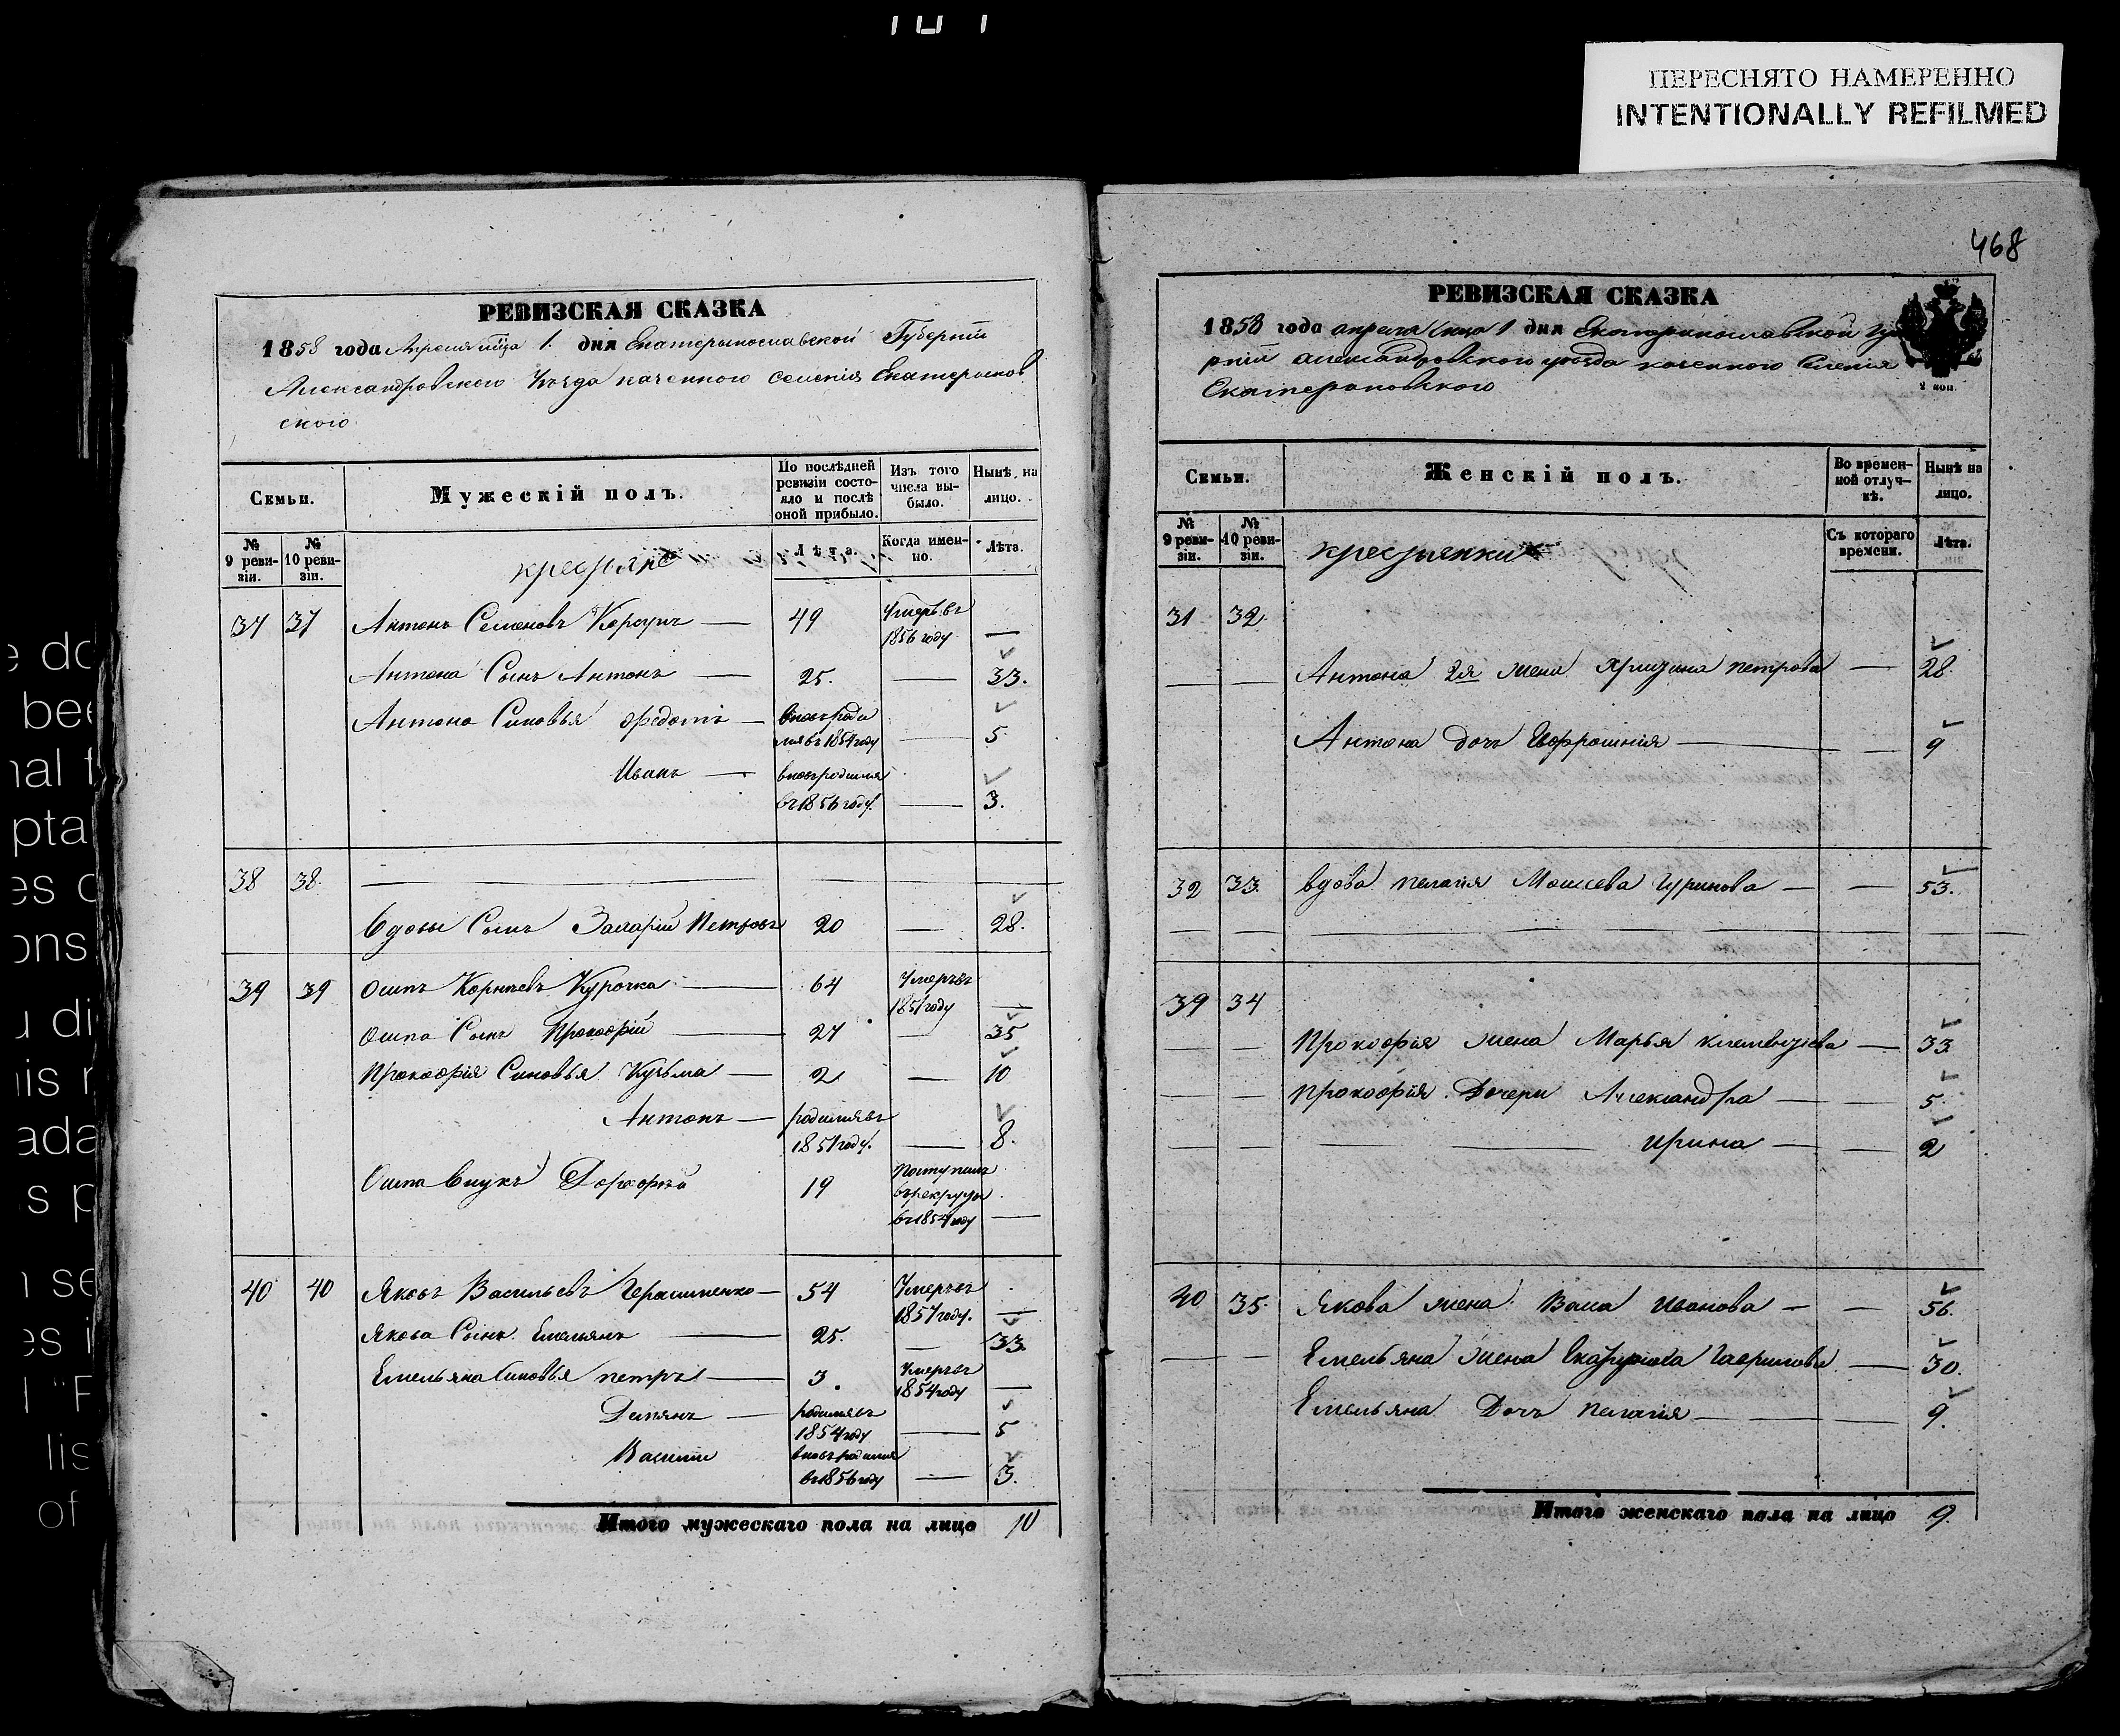 ПЕРЕСНЯТО НАМЕРЕННО
INTENTIONALLY REFILMED
РЕВИЗСКАЯ СКАЗКА
1858 года Апреля мца 1. дня Екатерынославской Губернiи
Александровского Уѣзда казенного селенiя Екатеринов
ского
Семьи.
Мужескій полъ.
По послѣдней ревизіи состояло и послѣ оной прибыло.
Изъ того числа выбыло.
Нынѣ на лицо.
№ 9 ревизіи.
№ 10 ревизіи.
крестьяне
Лѣта.
Когда именно.
Лѣта.
37 37 Антонъ Семеновъ 49 Умеръ въ
1856 году —
Антона Сынъ Антонъ — 25. — 33.
Антона Синовья Федотъ — вновь роди
лся въ 1854 году — 5
Иванъ — вновь родился
въ 1856 году. — 3.
38 38.
Вдовы Сынъ Захарiй Петровъ 20 — 28.
39 39 Осипъ Корнѣевъ Курочка — 64 Умеръ въ
1851 году —
Осипа Сынъ Прокофiй — 27 — 35
Прокофiя Синовья Кузьма — 2 — 10
Антонъ — родился въ
1851 году. — 8.
Осипа внукъ 19 Поступилъ
в рекруты
въ 1854 году —
40 40 Яковъ Васильевъ Герасименко — 54 Умеръ въ
1857 году. —
Якова Сынъ Емельянъ — 25. — 33.
Емельяна Синовья петръ — 3 Умеръ въ
1854 году —
Демянъ — родился въ
1854 году — 5
Василiй вновь родился
въ 1856 году — 3.
Итого мужескаго пола на лицо 10
468
РЕВИЗСКАЯ СКАЗКА
1858 года апреля мца 1 дня Екатеринославской Гу
рнiи александровского уѣзда казенного Селенiя
Екатериновского
2 коп.
Семьи.
Женскій полъ.
Во временной отлучкѣ.
Нынѣ на лицо.
№ 9 ревизіи.
№ 10 ревизіи.
крестьянки
Съ котораго времени.
Лѣта.
31 32.
— — Антона 2я жена петрова — 28.
Антона дочь — — 9
32 33. вдова пелагiя Моисеева Гуринова — — 53.
39 34
— — Прокофiя жена Марья — 33
— — Прокофiя Дочери Александра — — 5
ирина — — 2
40 35. Якова жена Васа Иванова — — 56.
— — Емельяна жена Гаврилова — 30.
Емельяна Дочь пелагiя — — 9.
Итого женскаго пола на лицо 9.